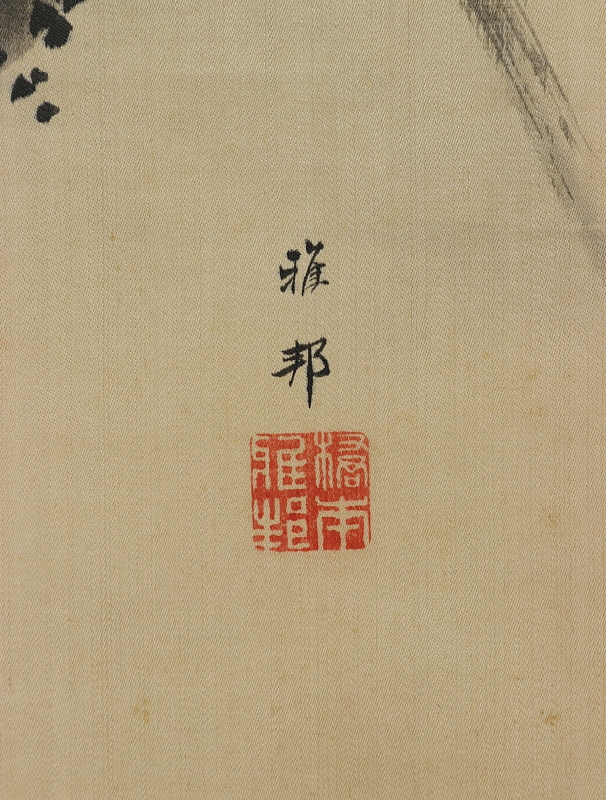 雅邦
橋本
雅邦